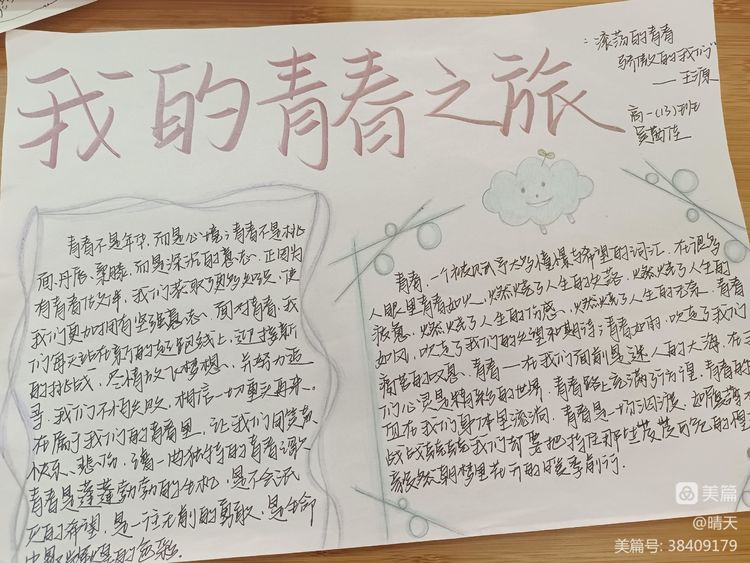 我的青春之旅
"滚荡的青春
骄傲的我们"
——王源
高一(13)班
吴勤佳
青春不是年华，而是心境；青春不是桃
面、丹唇、柔膝，而是深沉的意志。正因为
有青春做文章，我们获取了更多知识，使
我们更加拥有坚强意志。面对青春，我
们每天站在新的起跑线上，迎接新
的挑战，尽情放飞梦想，并努力追
寻。我们不怕失败，相信一切重头再来。
在属于我们的青春里，让我们用笑声
快乐、悲伤，谱一曲独特的青春之歌
青春是蓬蓬勃勃的生机，是不会泯
灭的希望，是一往无前的勇敢，是生命
中最辉煌的色彩。
青春，一个被赋予太多憧憬与希望的词汇。在很多
人眼里青春如火，燃烧了人生的失落，燃烧了人生的
疲惫，燃烧了人生的伤感，燃烧了人生的无奈。青春
如风，吹走了我们的失望和期待；青春如雨，吹走了我们
痛苦的叹息。青春——在我们面前是迷人的大海，在
们心灵是精彩的世界。青春路上充满了彷徨，青春的
血在我们身体里流淌。青春是一份沉淀，
战战兢兢我们都要把指尖那些
梦里花开的时季前行。
美篇
@晴天
美篇号: 38409179